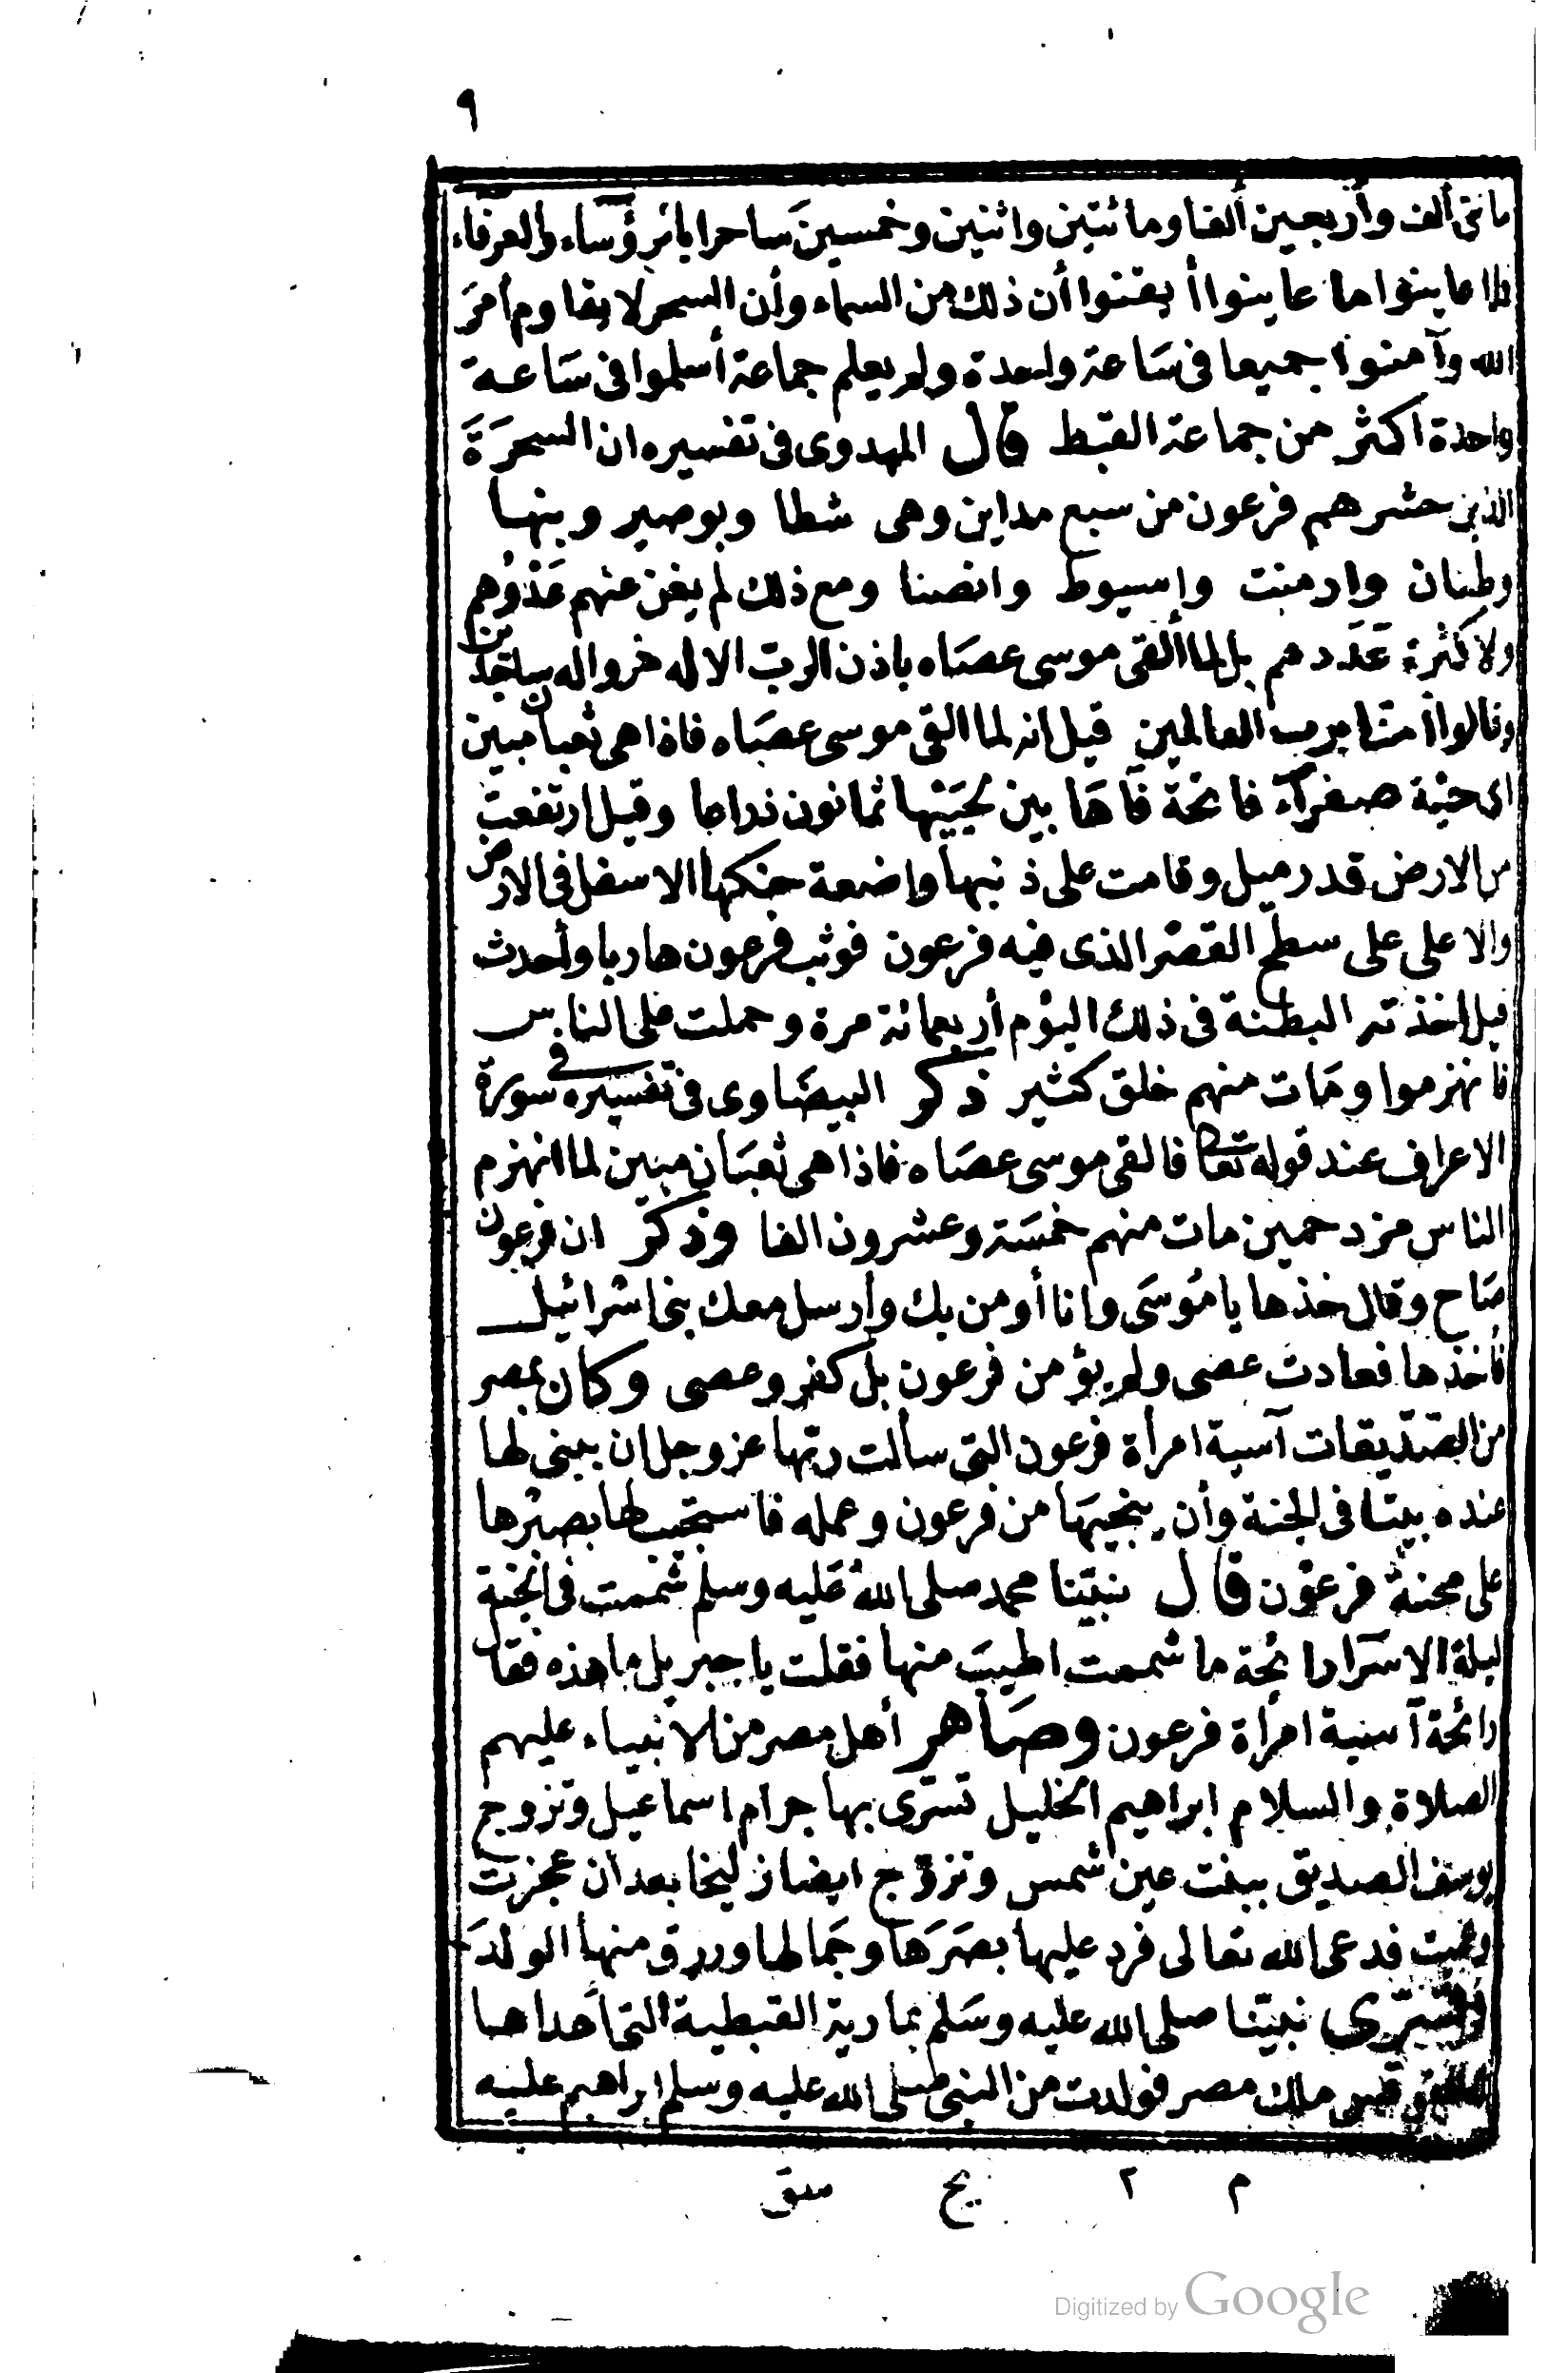 ٩
مائتى ألف وأربعين ألفا ومائتين واثنين وخمسين ساحرا بالرؤساء والعرفاء
فلما عاينوا ما عاينوا أيقنوا أن ذلك من السماء وأن السحر لا يقاوم أمر
الله وآمنوا جميعا فى ساعة واحدة ولم يعلم جماعة أسلموا فى ساعة
واحدة اكثر من جماعة القبط قال المهدوى فى تفسيره ان السحرة
الذين حشرهم فرعون من سبع مداين وهى شطا وبوصير وبنها
وطنان وارمنت واسيوط وانصنا ومع ذلك لم يغن عنهم عَدْوُهم
ولا كثرة عَدَدهم بل لما ألقى موسى عصاه باذن الرب الاله خروا له ساجدين
وقالوا امنا برب العالمين قيل انه لما القى موسى عصاه فاذا هى ثعبان مبين
اى حية صفراء فاتحة فَاهَا بين لحييها ثمانون ذراعا وقيل ارتفعت
من الارض قدر ميل وقامت على ذنبها واضعة حنكها الاسفل فى الارض
والاعلى على سطح القصر الذى فيه فرعون فوثب فرعون هاربا وأحدث
قيل اخذته البطنة فى ذلك اليوم أربعمائة مرة وحملت على الناس
فانهزموا ومات منهم خلق كثير ذكر البيضاوى فى تفسيره فى سورة
الاعراف عند قوله تعالى فالقى موسى عصاه فاذا هى ثعبان مبين لما انهزم
الناس مزدحمين مات منهم خمسة وعشرون الفا وذكر ان فرعون
صاح وقال خذها يا مُوسَى وانا أومن بك وأرسل معك بنى اسْرائيل
فأخذها فعادت عصى ولم يؤمن فرعون بل كفر وعصى وكان بمصر
من الصدّيقات آسية امرأة فرعون التى سألت ربّها عز وجل ان يبنى لها
عنده بيتا فى الجنة وأن ينجيها من فرعون وعمله فاستجيب لها بصبرها
على محنة فرعون قال نبيّنا محمد صلى الله عليه وسلم شممت فى الجنة
ليلة الاسرا رائحة ما شممت اطيب منها فقلت يا جبريل ما هذه فقال
رائحة آسية امرأة فرعون وصاهر أهل مصر من الانبياء عليهم
الصلاة والسلام ابراهيم الخليل تسرّى بهاجر ام اسماعيل وتزوج
يوسف الصديق ببنت عين شمس وتزوّج ايضا زليخا بعد أن عجزت
وعميت فدعى الله تعالى فرد عليها بصَرَها وجَمالها ورزق منها الولدَ
وتسرّى نبيّنا صلى الله عليه وسلم بمارية القبطية التى أهداها
المقوقس ملك مصر فولدت من النبى صلى الله عليه وسلم ابراهيم عليه
م ٢ يح سق
Digitized by Google